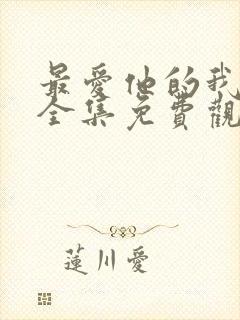 最愛他的我
全集免費觀
蓮川愛